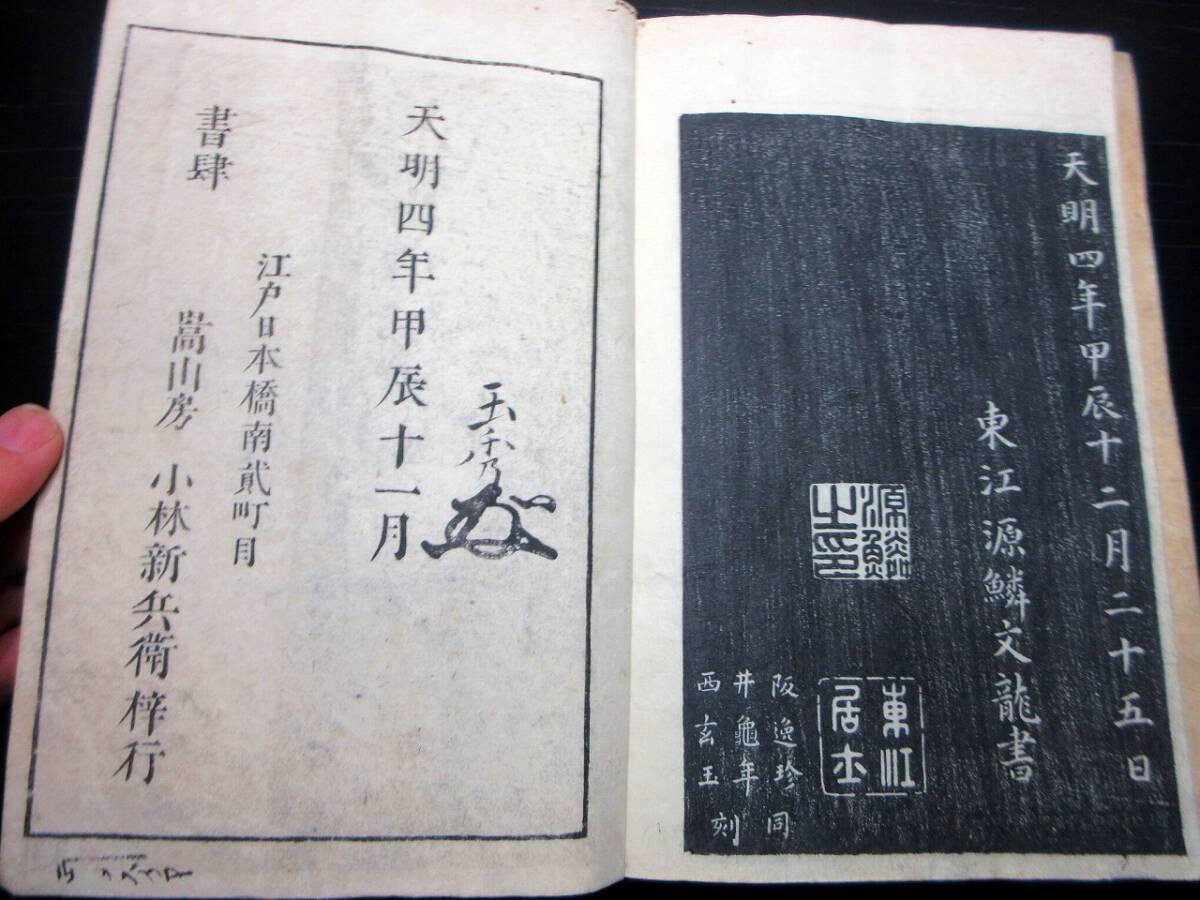 天明四年甲辰十二月二十五日
東江源鱗文龍書
源鱗
之印
東江
居士
阪逸珍同
井龜年
西玄玉刻
天明四年甲辰十一月
江戸日本橋南貳町目
書肆
嵩山房 小林新兵衛梓行